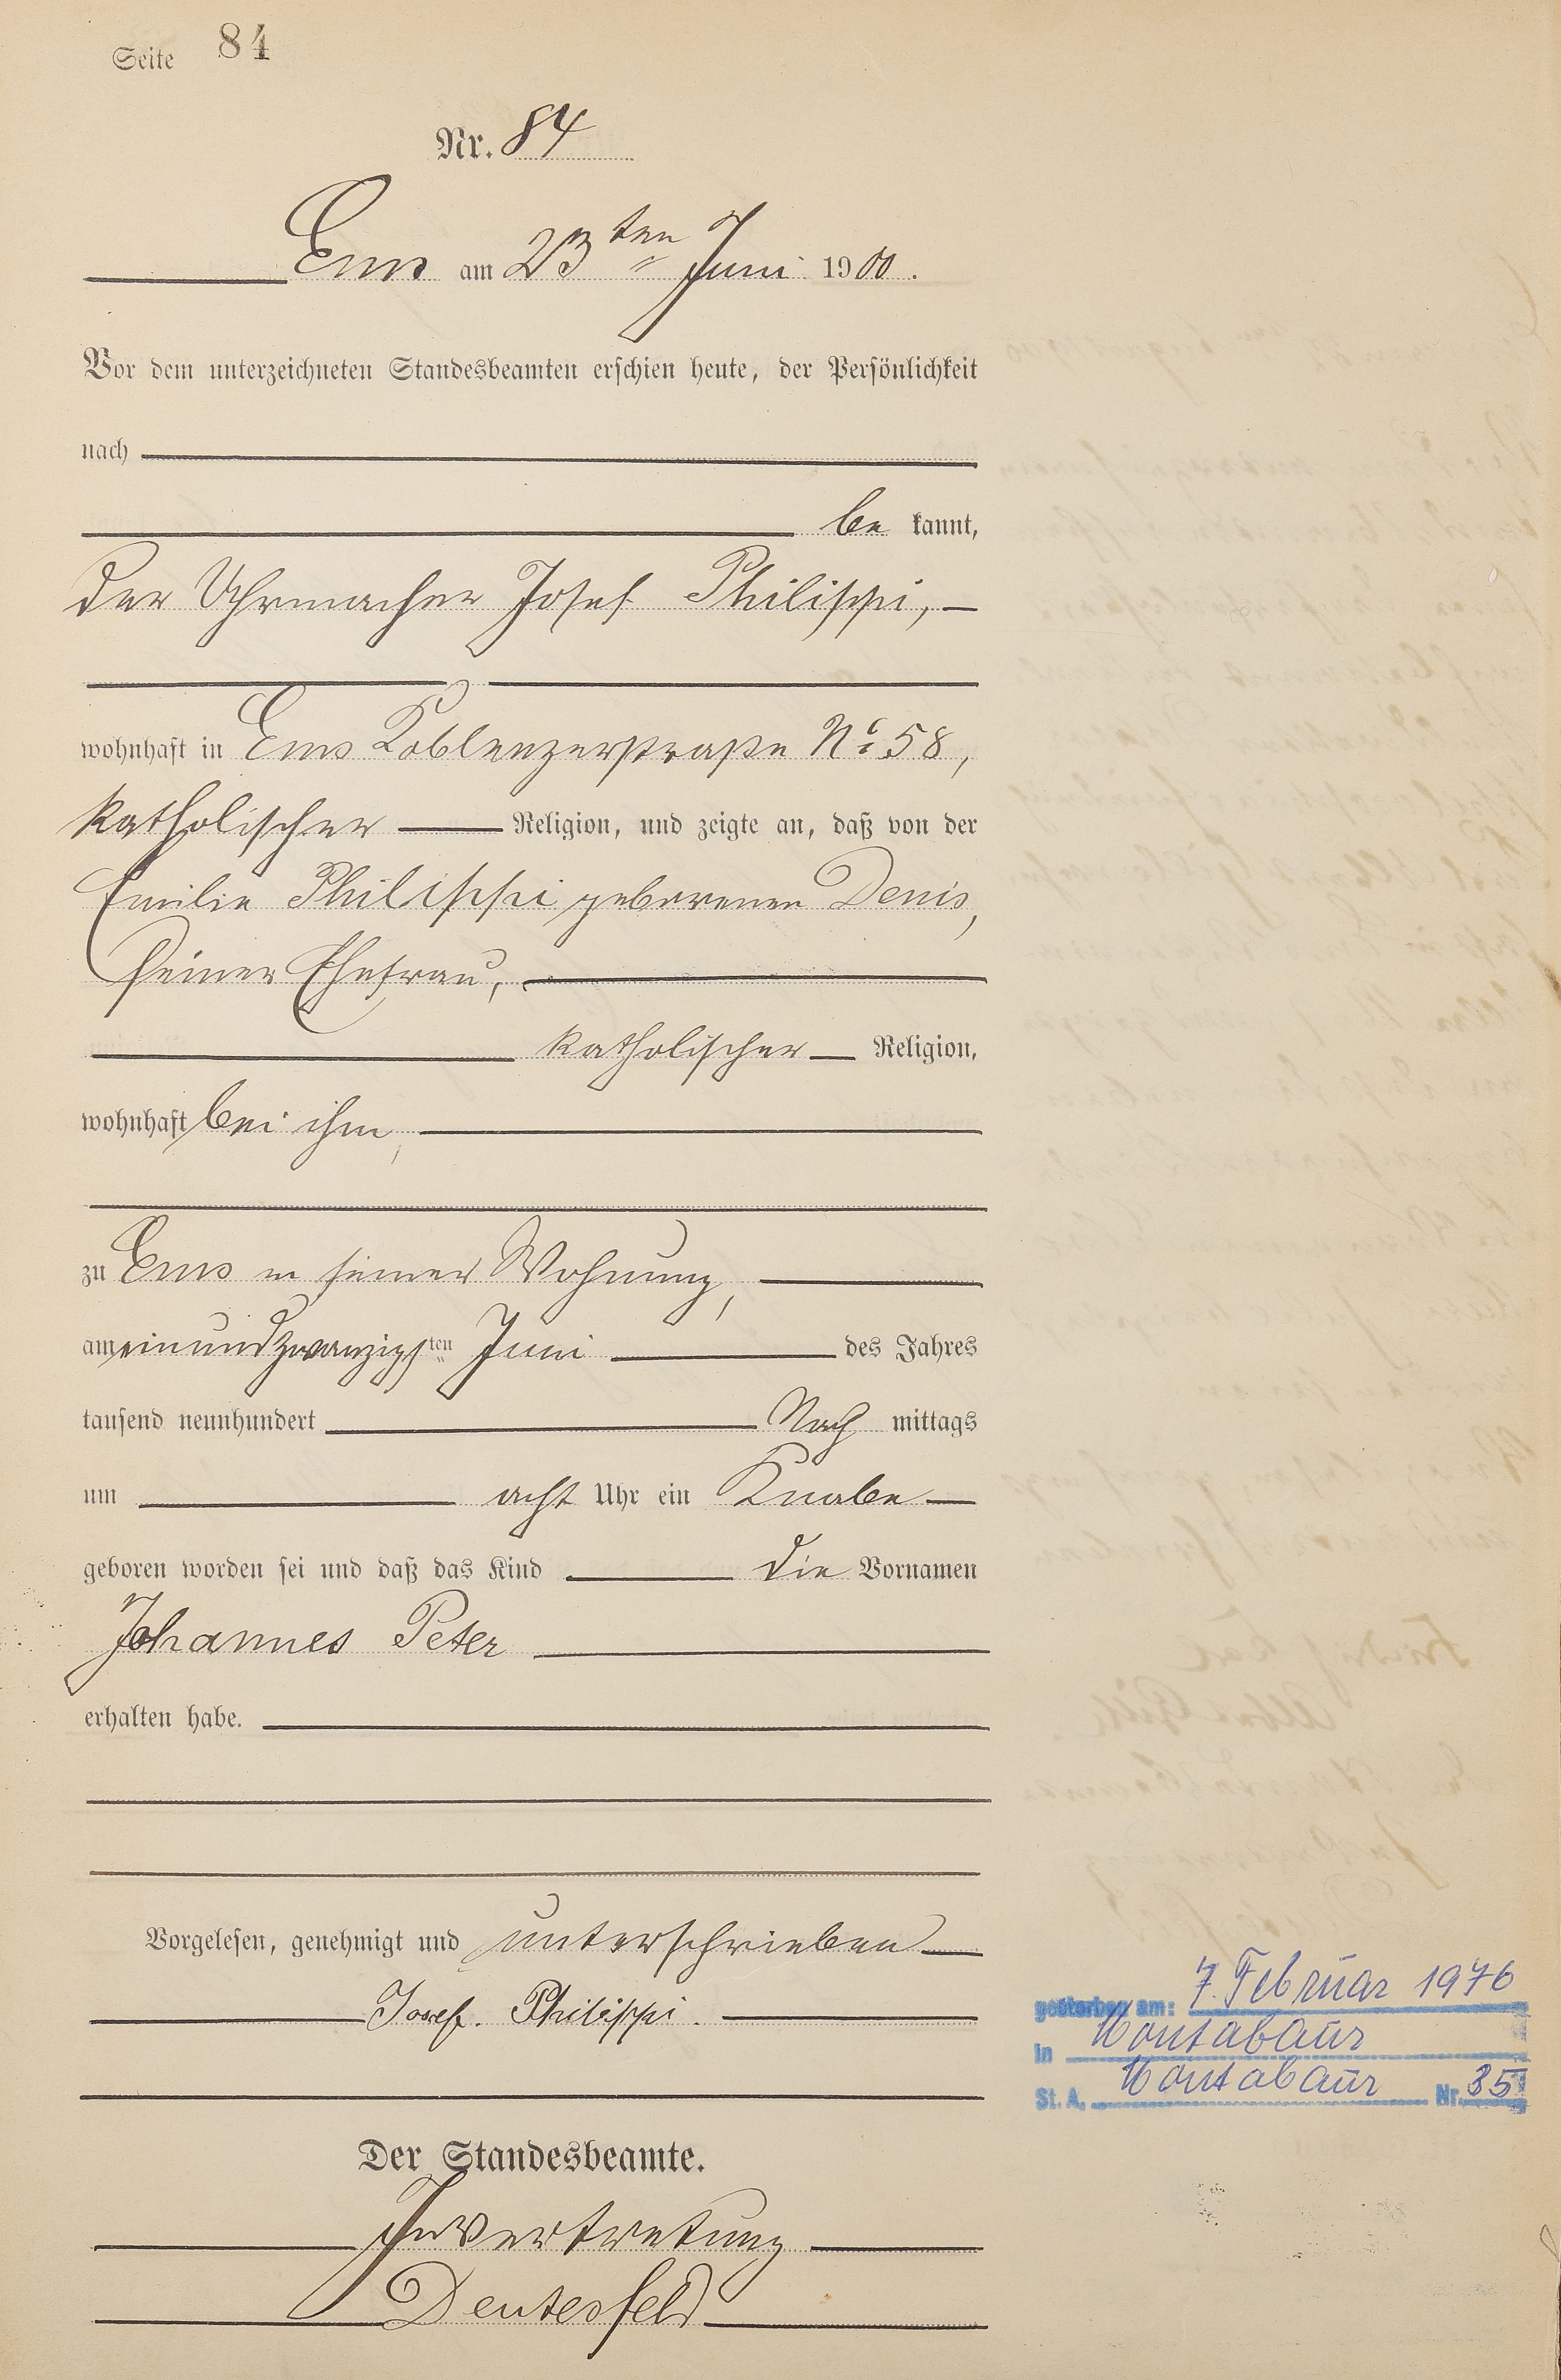 Seite 84
Nr. 84
Ems am 23ten Juni 1900.
Vor dem unterzeichneten Standesbeamten erschien heute, der Persönlichkeit
nach
be kannt,
der Uhrmacher Josef Philippi,
wohnhaft in Ems Koblenzerstraße No 58,
katholischer Religion, und zeigte an, daß von der
Emilie Philippi geborenen Denis,
seiner Ehefrau,
katholischer Religion,
wohnhaft bei ihm,
zu Ems in seiner Wohnung,
am einundzwanzigsten Juni des Jahres
tausend neunhundert Nach mittags
um acht Uhr ein Knabe
geboren worden sei und daß das Kind die Vornamen
Johannes Peter
erhalten habe.
Vorgelesen, genehmigt und unterschrieben
Josef. Philippi.
gestorben am: 7. Februar 1976
in Montabaur
St. A. Montabaur Nr. 35
Der Standesbeamte.
In Vertretung
Deutesfeld